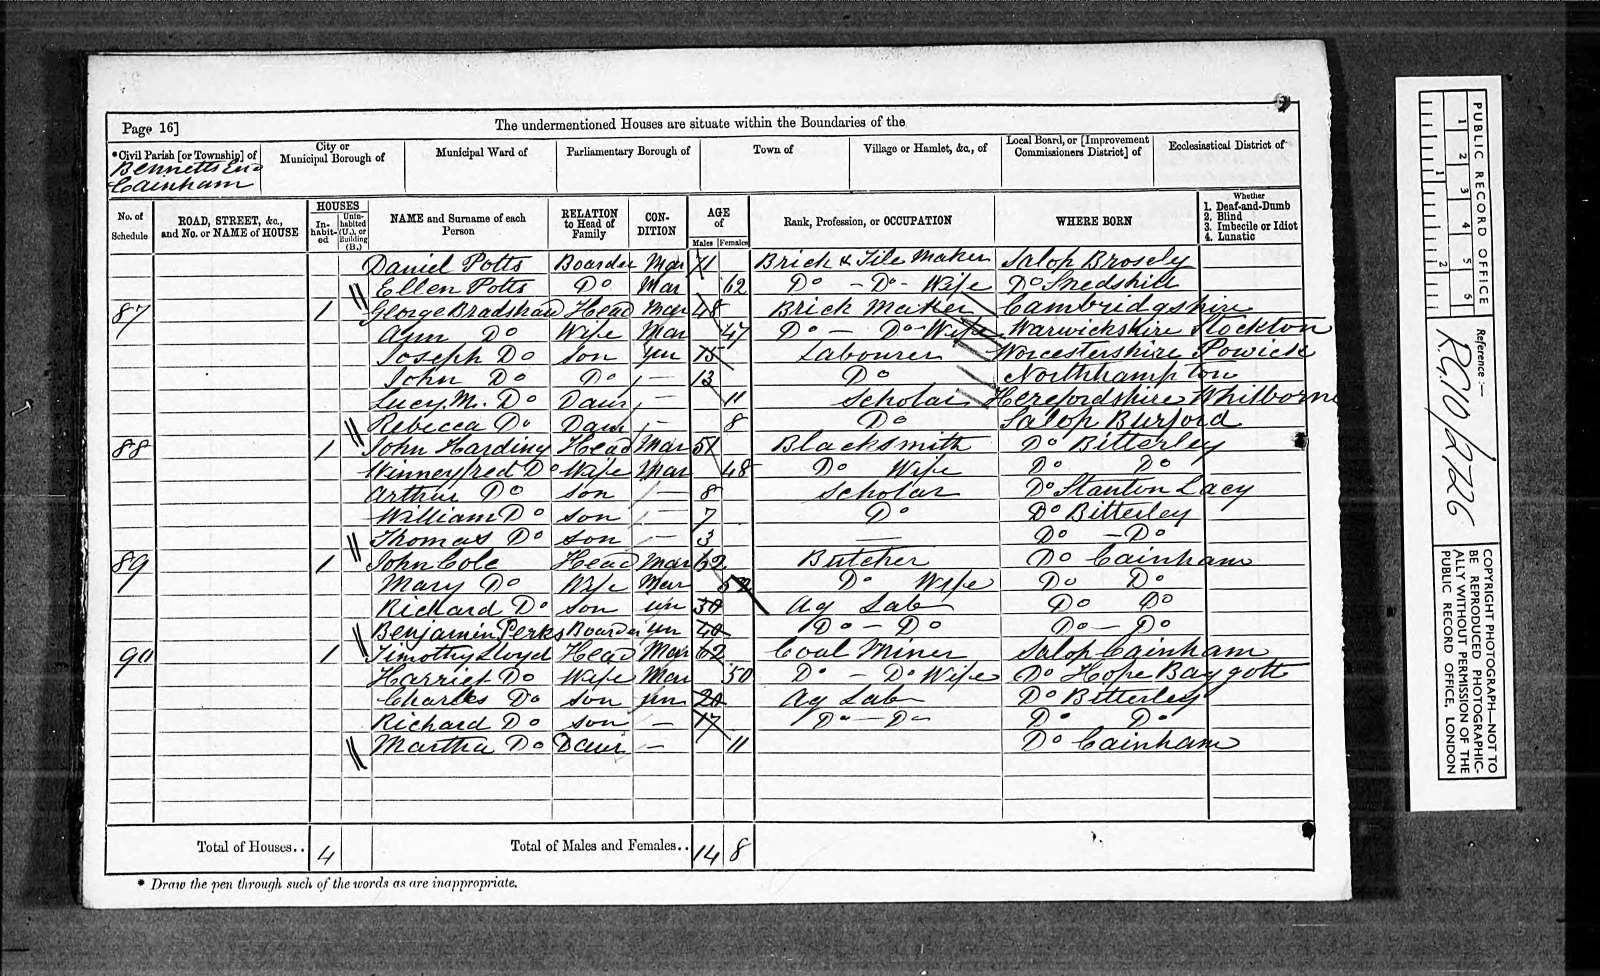 Page 16]
The undermentioned Houses are situate within the Boundaries of the
*Civil Parish [or Township] of
Bennetts End
Cainham
City or
Municipal Borough of
Municipal Ward of
Parliamentary Borough of
Town of
Village or Hamlet, &c., of
Local Board, or [Improvement
Commissioners District] of
Ecclesiastical District of
No. of
Schedule
ROAD, STREET, &c.,
and No. or NAME of HOUSE
HOUSES
In-
habit-
ed
Unin-
habited
(U.), or
Building
(B.)
NAME and Surname of each
Person
RELATION
to Head of
Family
CON-
DITION
AGE
of
Males
Females
Rank, Profession, or OCCUPATION
WHERE BORN
Whether
1. Deaf-and-Dumb
2. Blind
3. Imbecile or Idiot
4. Lunatic
Daniel Potts Boarder Mar 71 Brick & Tile Maker Salop Brosely
Ellen Potts Do Mar 62 Do - Do - Wife Do Snedshill
87 1 George Bradshaw Head Mar 48 Brick Maker Cambridgshire
Ann Do Wife Mar 47 Do - Do Wife Warwickshire Stockton
Joseph Do Son Un 15 Labourer Worcestershire Powick
John Do Do - 13 Do Northhampton
Lucy. M. Do Daur - 11 Scholar Herefordshire Whitborne
Rebecca Do Daur - 8 Do Salop Burford
88 1 John Harding Head Mar 51 Blacksmith Do Bitterley
Winneyfred Do Wife Mar 48 Do Wife Do Do
Arthur Do Son - 8 Scholar Do Stanton Lacy
William Do Son - 7 Do Do Bitterley
Thomas Do Son - 3 — Do - Do
89 1 John Cole Head Mar 62 Butcher Do Cainham
Mary Do Wife Mar 52 Do Wife Do Do
Richard Do Son Un 30 Ag Lab Do Do
Benjamin Perks Boarder Un 40 Do - Do Do - Do
90 1 Timothy Lloyd Head Mar 62 Coal Miner Salop Cainham
Harriet Do Wife Mar 50 Do - Do Wife Do Hope Baggott
Charles Do Son Un 20 Ag Lab Do Bitterley
Richard Do Son - 17 Do - Do Do Do
Martha Do Daur - 11 Do Cainham
Total of Houses.. 4
Total of Males and Females.. 14 8
* Draw the pen through such of the words as are inappropriate.
PUBLIC RECORD OFFICE
1 2 3 4 5 6
1 2
Reference :—
R.G. 10/2726
COPYRIGHT PHOTOGRAPH—NOT TO
BE REPRODUCED PHOTOGRAPHIC-
ALLY WITHOUT PERMISSION OF THE
PUBLIC RECORD OFFICE, LONDON